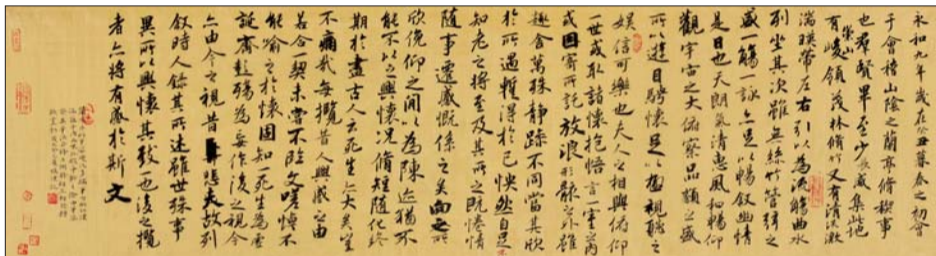 永和九年歲在癸丑暮春之初會
于會稽山陰之蘭亭脩稧事
也群賢畢至少長咸集此地
有崇山峻領茂林脩竹又有清流激
湍暎帶左右引以為流觴曲水
列坐其次雖無絲竹管絃之
盛一觴一詠亦足以暢叙幽情
是日也天朗氣清惠風和暢仰
觀宇宙之大俯察品類之盛
所以遊目騁懷足以極視聽之
娛信可樂也夫人之相與俯仰
一世或取諸懷抱悟言一室之內
或因寄所託放浪形骸之外雖
趣舍萬殊靜躁不同當其欣
於所遇蹔得於己怏然自足不
知老之將至及其所之既惓情
隨事遷感慨係之矣向之所
欣俛仰之間以為陳迹猶不
能不以之興懷況脩短隨化終
期於盡古人云死生亦大矣豈
不痛哉每攬昔人興感之由
若合一契未嘗不臨文嗟悼不
能喻之於懷固知一死生為虛
誕齊彭殤為妄作後之視今
亦由今之視昔悲夫故列
叙時人錄其所述雖世殊事
異所以興懷其致一也後之攬
者亦將有感於斯文